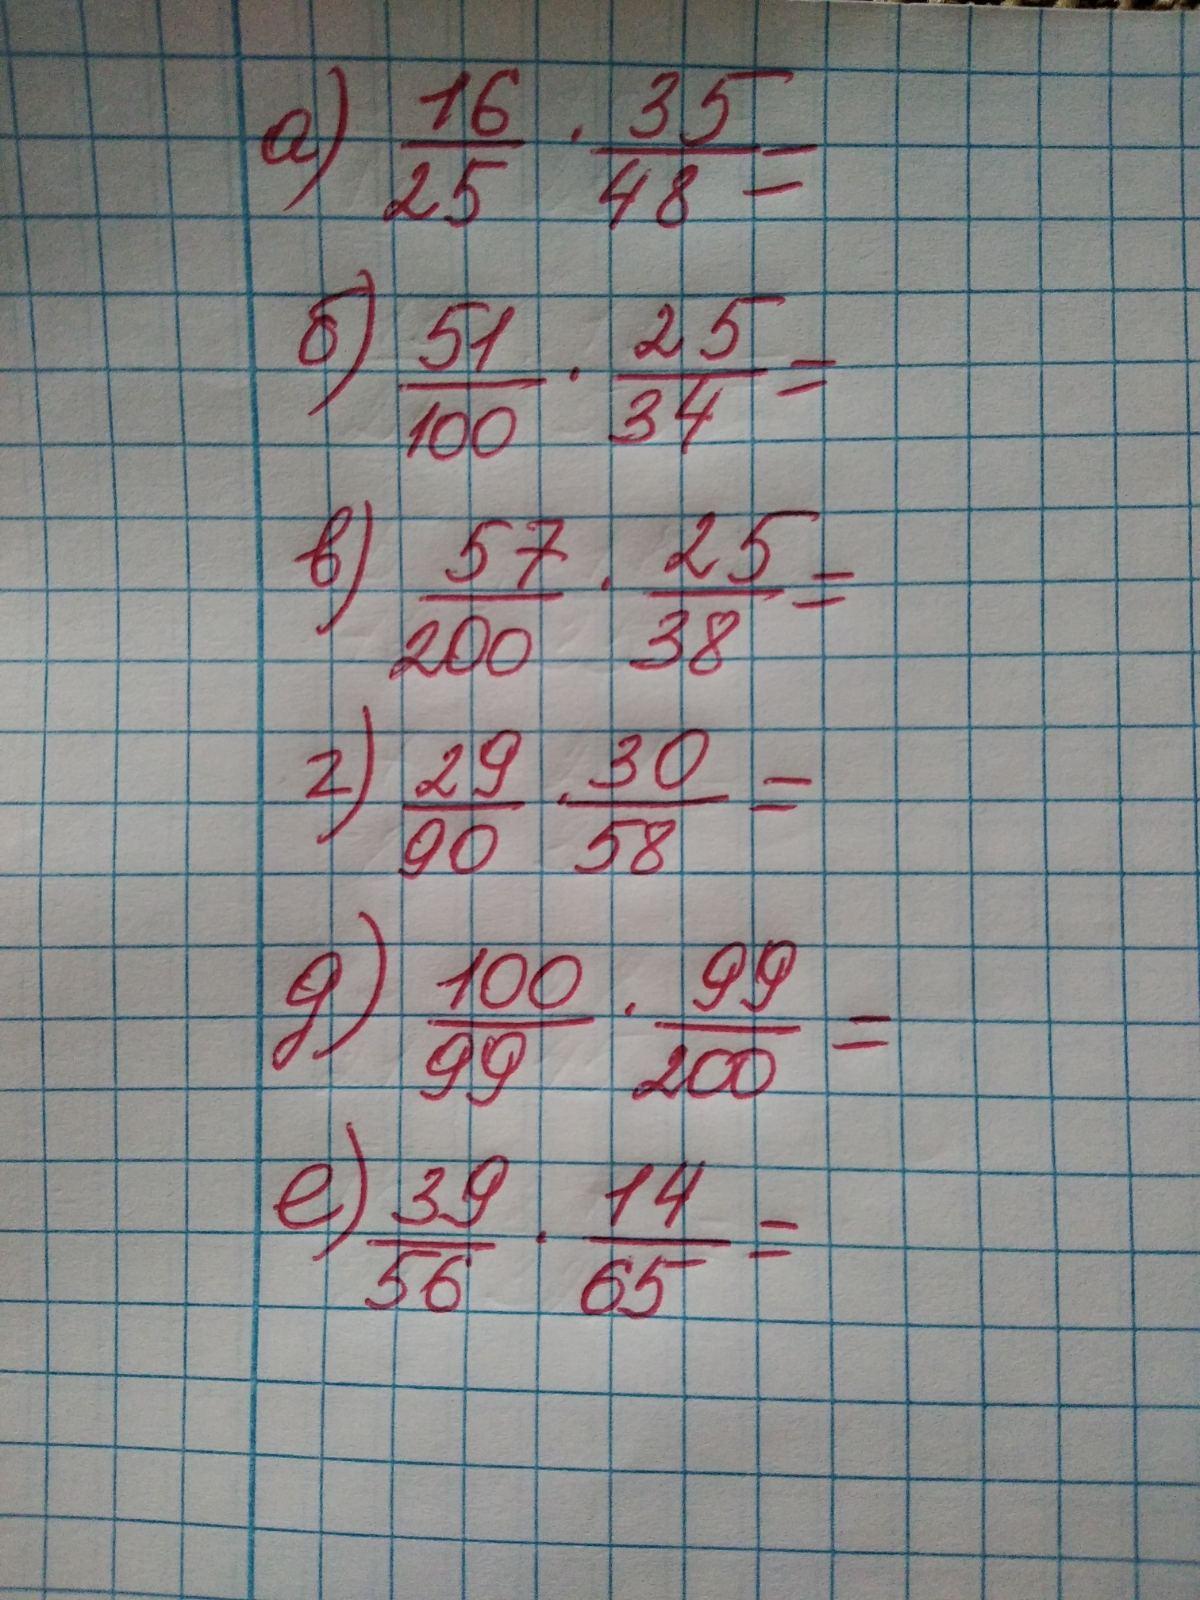 а) 16/25 · 35/48 =
б) 51/100 · 25/34 =
в) 57/200 · 25/38 =
г) 29/90 · 30/58 =
д) 100/99 · 99/200 =
е) 39/56 · 14/65 =